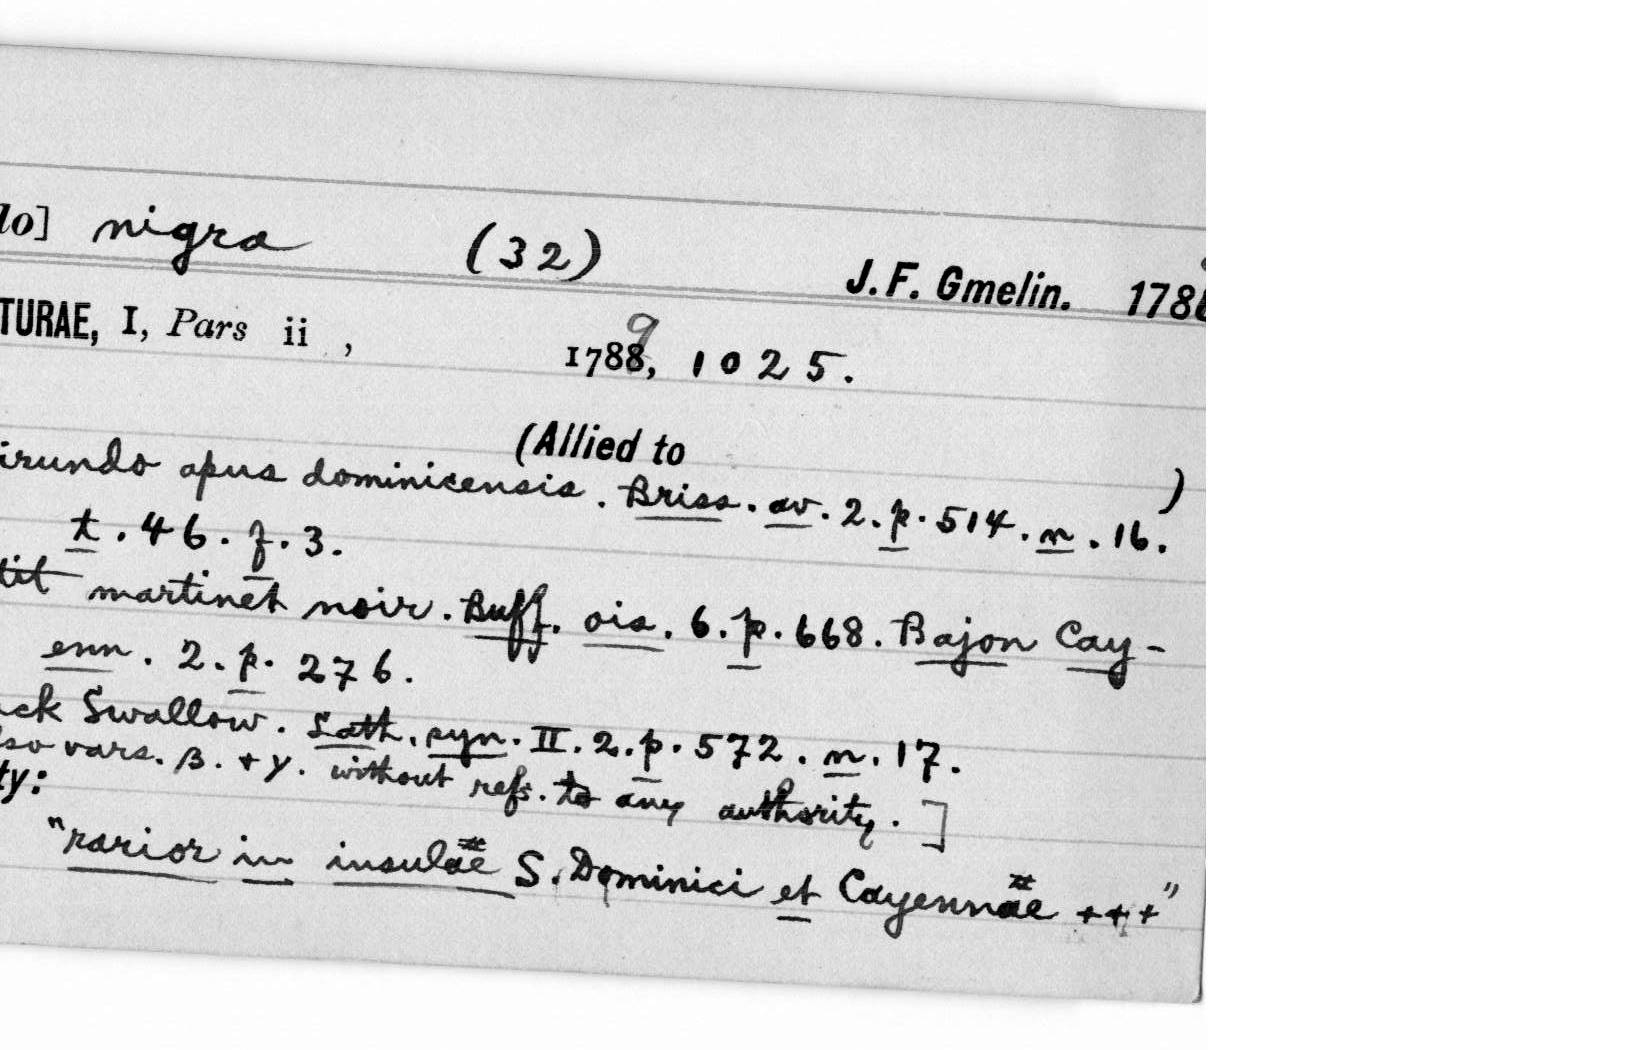 lo] nigra (32)
J. F. Gmelin. 178
TURAE, I, Pars ii , 1788, 9 1025.
(Allied to )
irundo apus dominicensis. Briss. av. 2. p. 514. n. 16.
t. 46. f. 3.
tit martinet noir. Buff. ois. 6. p. 668. Bajon Cay-
enn. 2. p. 276.
ck Swallow. Lath. syn. II. 2. p. 572. n. 17.
lso vars. β. + γ. without refs. to any authority. ]
ty:
"rarior in insulae S. Dominici et Cayennae +++"